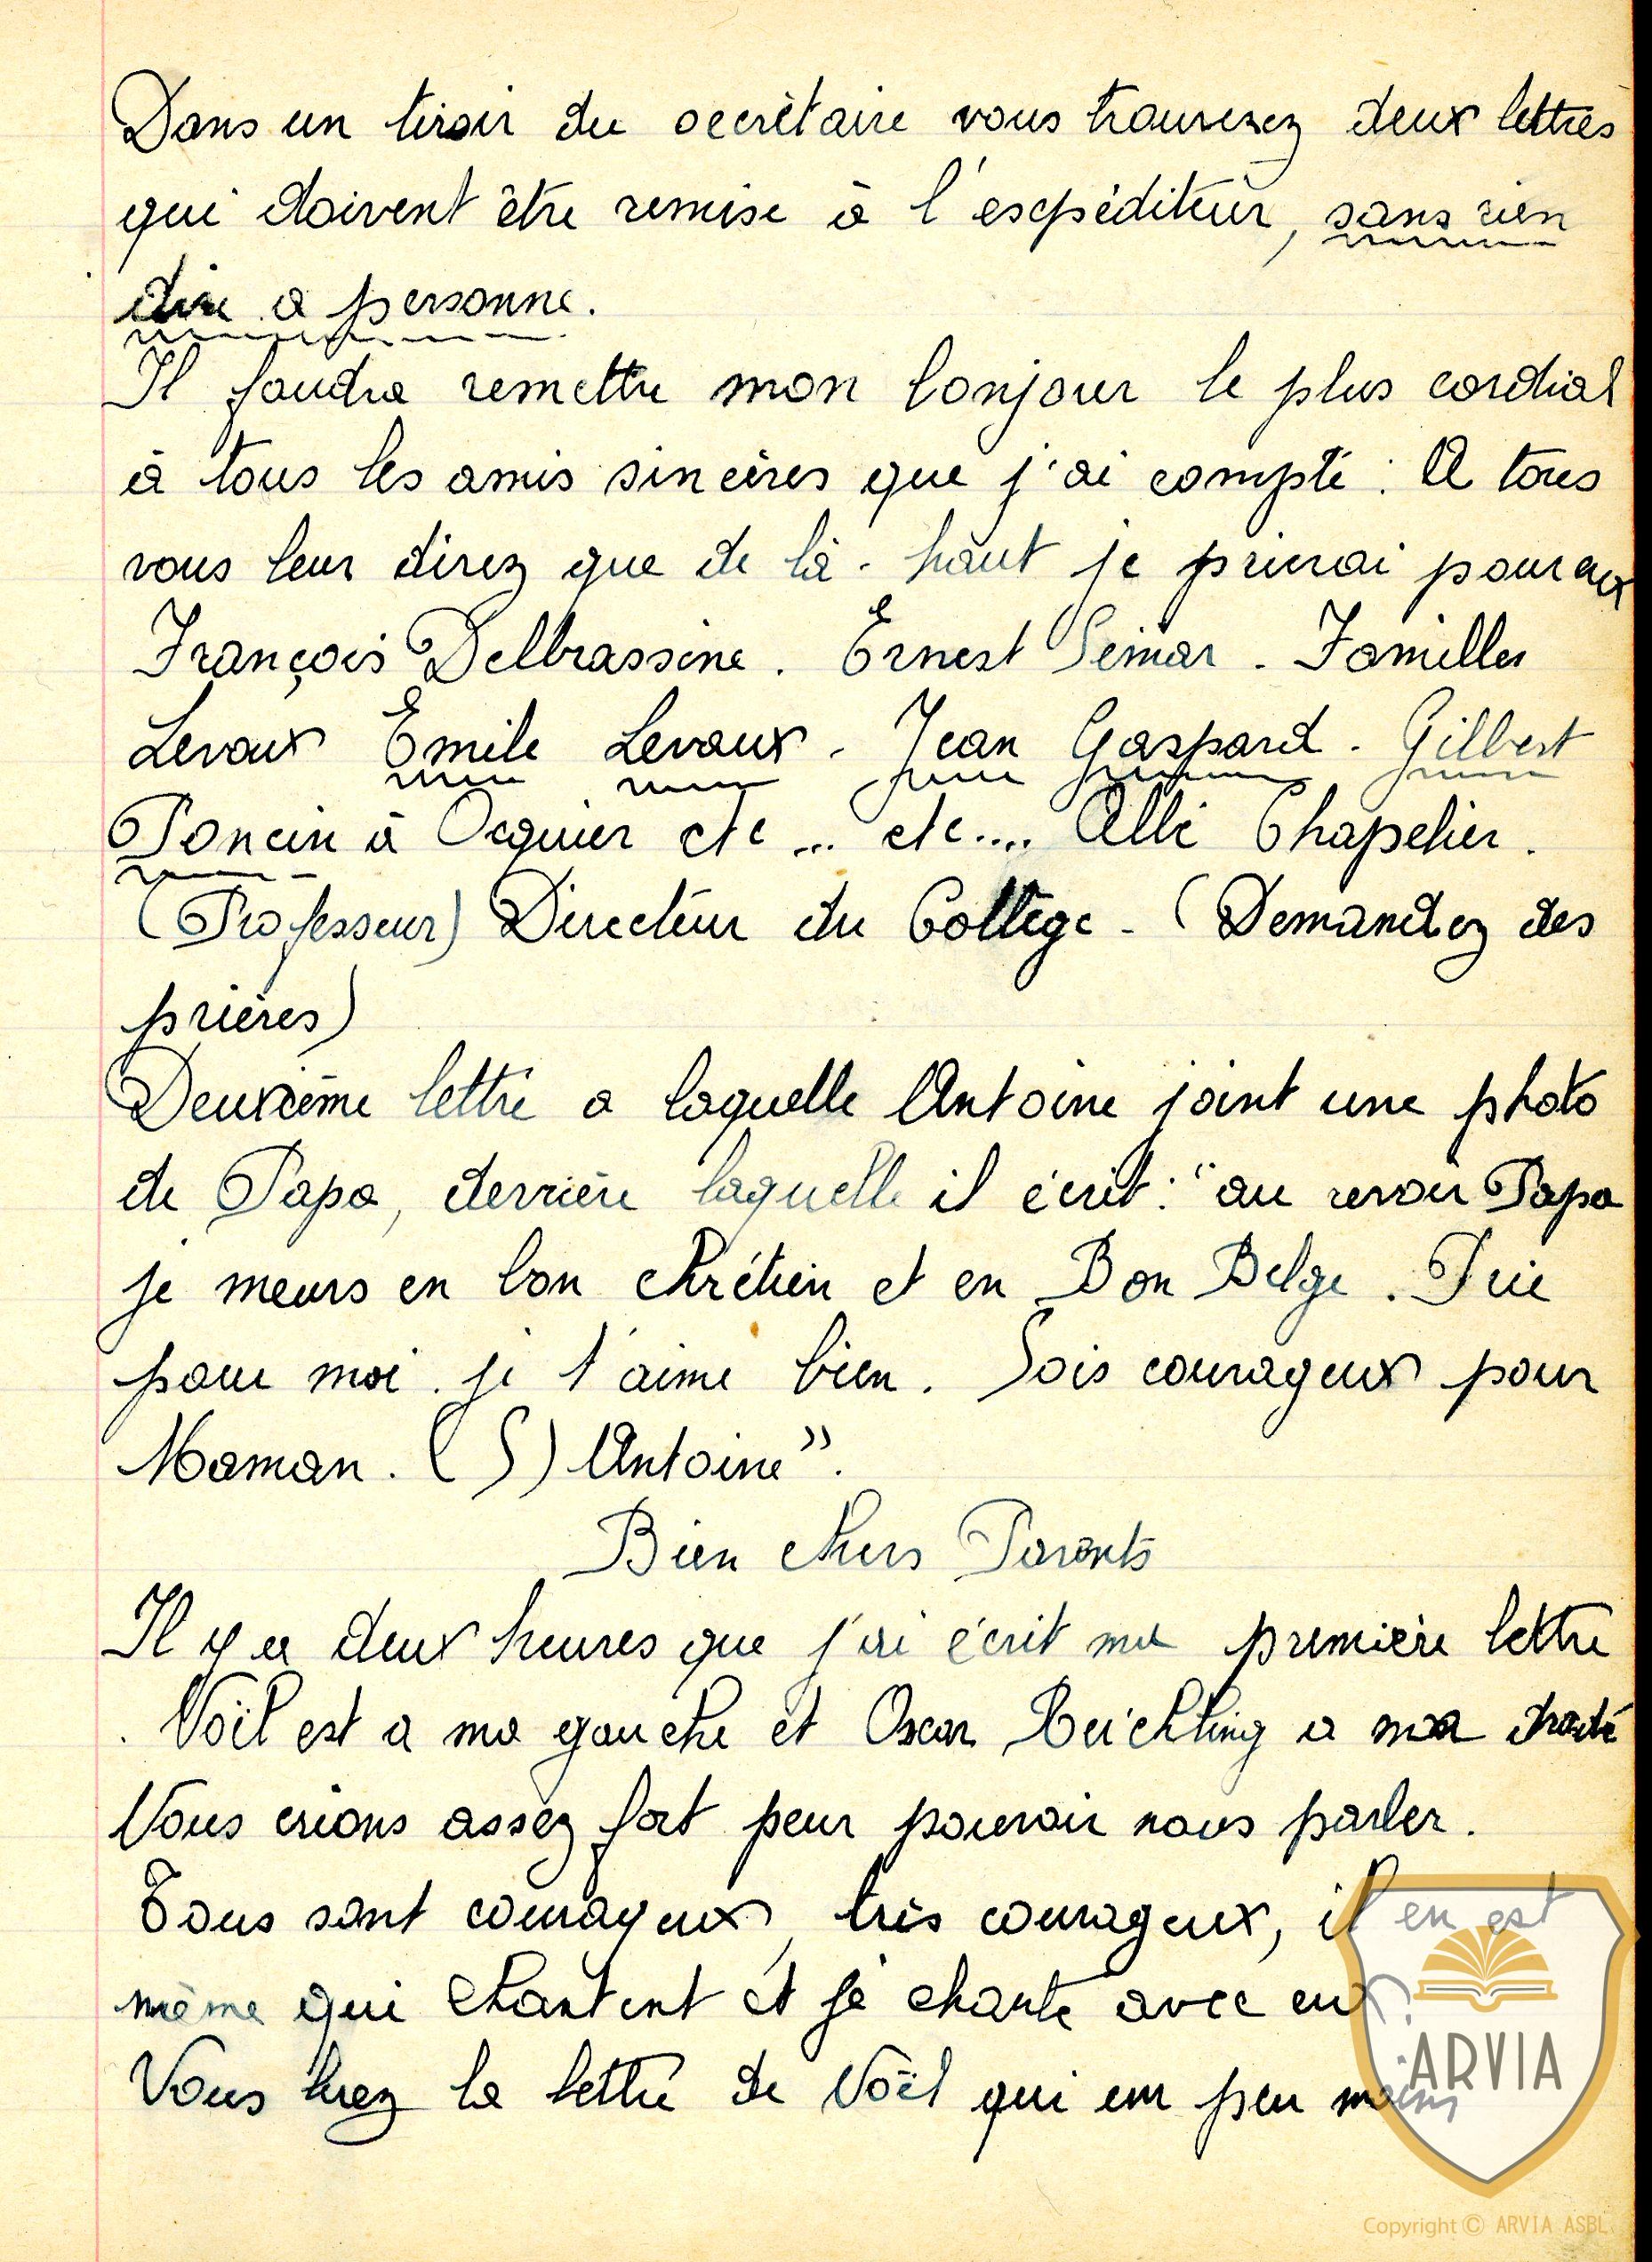 Dans un tiroir du secrètaire vous trouverez deux lettres
qui doivent être remise à l'expéditeur, sans rien
dire a personne.
Il faudra remettre mon bonjour le plus cordial
à tous les amis sincères que j'ai compté : A tous
vous leur direz que de là-haut je prierai pour eux
François Delbrassine. Ernest Simar. Familles
Levaux Emile Levaux. Jean Gaspard. Gilbert
Poncin à Ocquier etc ... etc.... Abbé Chapelier.
(Professeur) Directeur du Collège - (Demandez des
prières)
Deuxième lettre a laquelle Antoine joint une photo
de Papa, derrière laquelle il écrit : "au revoir Papa
je meurs en bon chrétien et en Bon Belge. Prie
pour moi. je t'aime bien. Sois courageux pour
Maman. (S) Antoine".
Bien chers Parents
Il y a deux heures que j'ai écrit ma première lettre
. Noël est a ma gauche et Oscar Reichling a ma droite
Nous crions assez fort peur pouvoir nous parler.
Tous sont courageux, très courageux, il en est
même qui chantent et je chante avec eux.
Vous lirez la lettre de Noël qui eur peu moins
ARVIA
Copyright © ARVIA ASBL